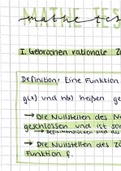 MATHE TES
mathe tes
I. Gebrochen rationale Z
Definition: Eine Funktion
g(x) und h(x) heißen ge
→ Die Nullstellen des N
geschlossen und ist so
→ Die Nullstellen des Zä
Funktion f.